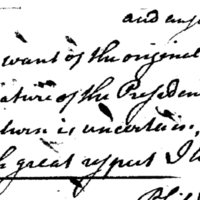 and
want of the original
ature of the Presiden
turn is uncertain,
great respect I